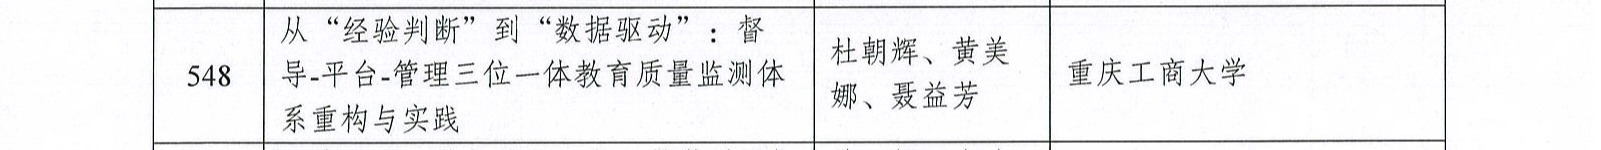 548
从“经验判断”到“数据驱动”：督
导-平台-管理三位一体教育质量监测体
系重构与实践
杜朝辉、黄美
娜、聂益芳
重庆工商大学